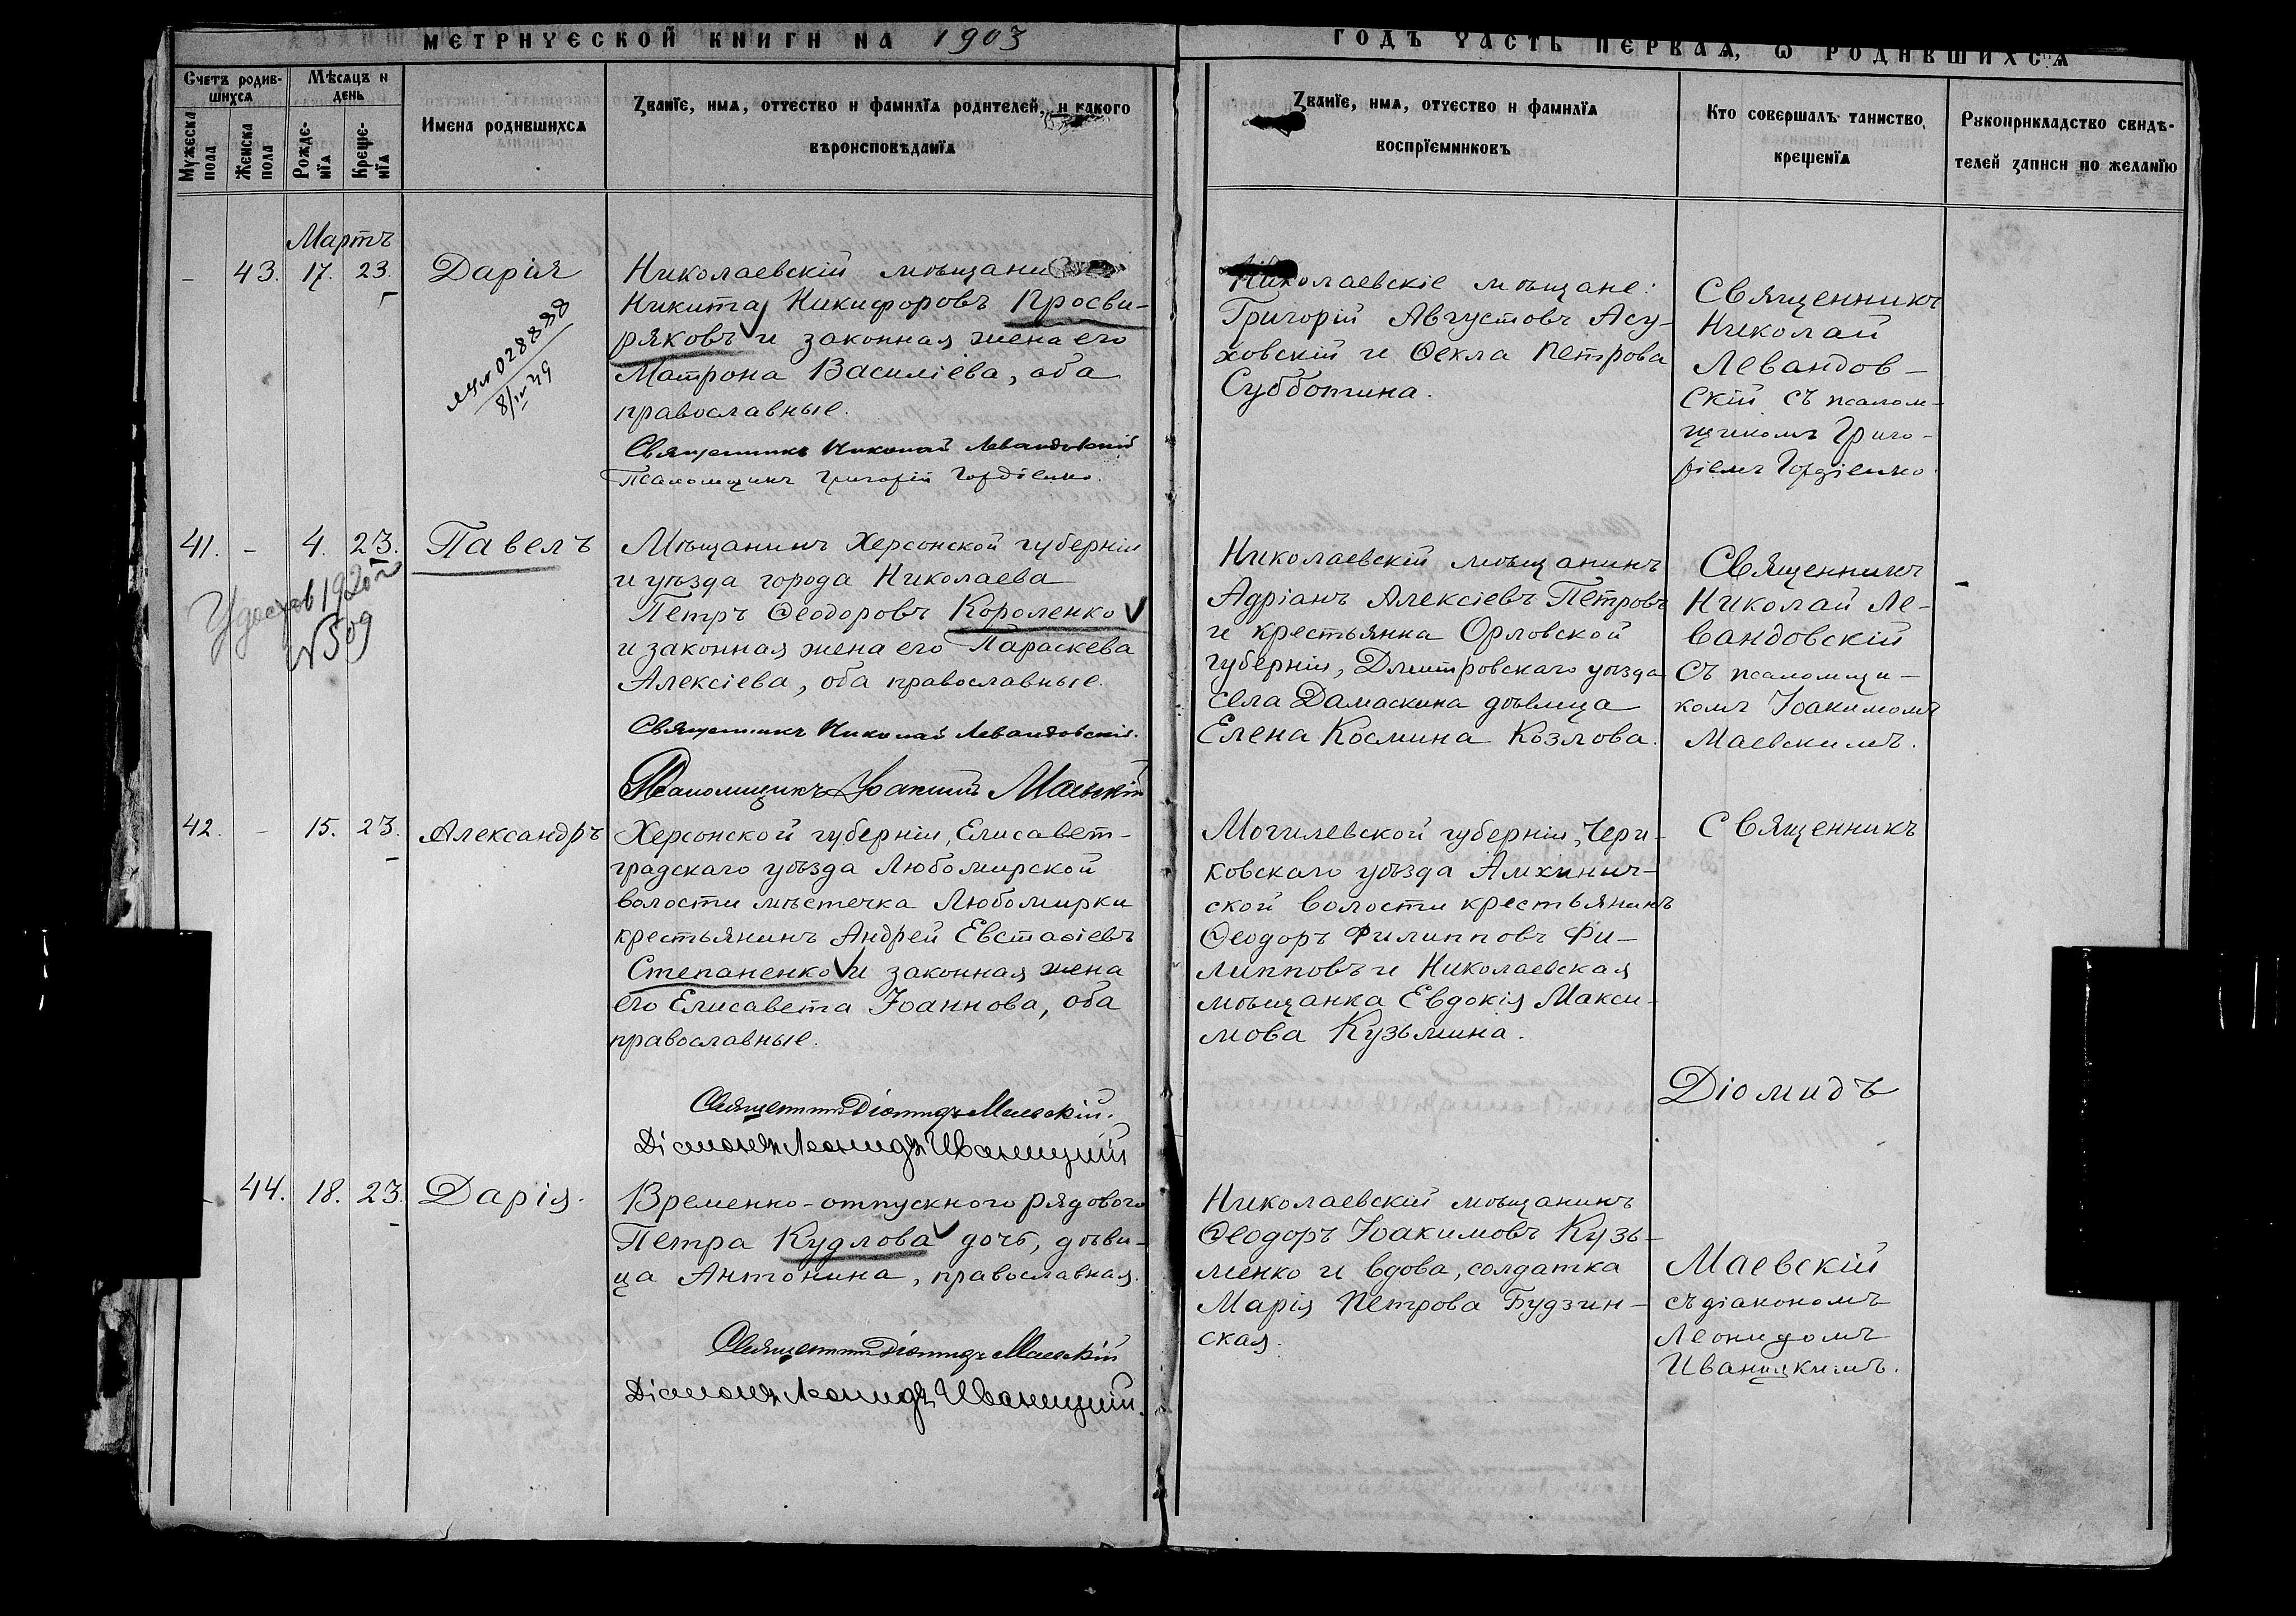 МЕТРИЧЕСКОЙ КНИГИ НА 1903
ГОДЪ ЧАСТЬ ПЕРВАѦ, Ѡ РОДИВШИХСѦ
Счетъ родив-
шихсѧ
Мѣсѧцъ и
день
Мужеска
пола
Женска
пола
Рожде-
нїѧ
Креще-
нїѧ
Имена родившихсѧ
Званїе, имѧ, отчество и фамилїѧ родителей, и какого
вѣроисповѣданїѧ
Званїе, имѧ, отчество и фамилїѧ
воспрїемниковъ
Кто совершалъ таинство
крещенїѧ
Рукоприкладство свидѣ-
телей записи по желанїю
Мартъ
- 43. 17. 23.
Дарія
8/IV 49
Николаевскій мѣщанинъ
Никита Никифоровъ Просви-
ряковъ и законная жена его
Матрона Василіева, оба
православные.
Священникъ Николай Левандовскій
Псаломщикъ Григорій Гордіенко.
Николаевскіе мѣщане:
Григорій Августовъ Асу-
ховскій и Ѳекла Петрова
Субботина.
Священникъ
Николай
Левандов-
скій съ псалом-
щикомъ Григо-
ріемъ Гордіенко.
41. - 4. 23.
Павелъ
1920 г
N 509
Мѣщанинъ Херсонской губерніи
и уѣзда города Николаева
Петръ Ѳеодоровъ Короленко
и законная жена его Параскева
Алексіева, оба православные.
Священникъ Николай Левандовскій.
Псаломщикъ Іоакимъ Маевскій
Николаевскій мѣщанинъ
Адріанъ Алексіевъ Петровъ
и крестьянка Орловской
губерніи, Дмитровскаго уѣзда
села Дамаскина дѣвица
Елена Космина Козлова.
Священникъ
Николай Ле-
вандовскій
съ псаломщи-
комъ Іоакимомъ
Маевскимъ.
42. - 15. 23.
Александръ
Херсонской губерніи, Елисавет-
градскаго уѣзда Любомирской
волости мѣстечка Любомирки
крестьянинъ Андрей Евстаѳіевъ
Степаненко и законная жена
его Елисавета Іоаннова, оба
православные.
Священникъ Діомидъ Маевскій.
Діаконъ Леонидъ Иваницкій
Могилевской губерніи, Чери-
ковскаго уѣзда Амхинич-
ской волости крестьянинъ
Ѳеодоръ Филипповъ Фи-
липповъ и Николаевская
мѣщанка Евдокія Макси-
мова Кузьмина.
Священникъ
Діомидъ
- 44. 18. 23.
Дарія.
Временно-отпускного рядового
Петра Кудлова дочь, дѣви-
ца Антонина, православная.
Священникъ Діомидъ Маевскій
Діаконъ Леонидъ Иваницкій.
Николаевскій мѣщанинъ
Ѳеодоръ Іоакимовъ Кузь-
менко и вдова, солдатка
Марія Петрова Будзин-
ская.
Маевскій
съ діакономъ
Леонидомъ
Иваницкимъ.